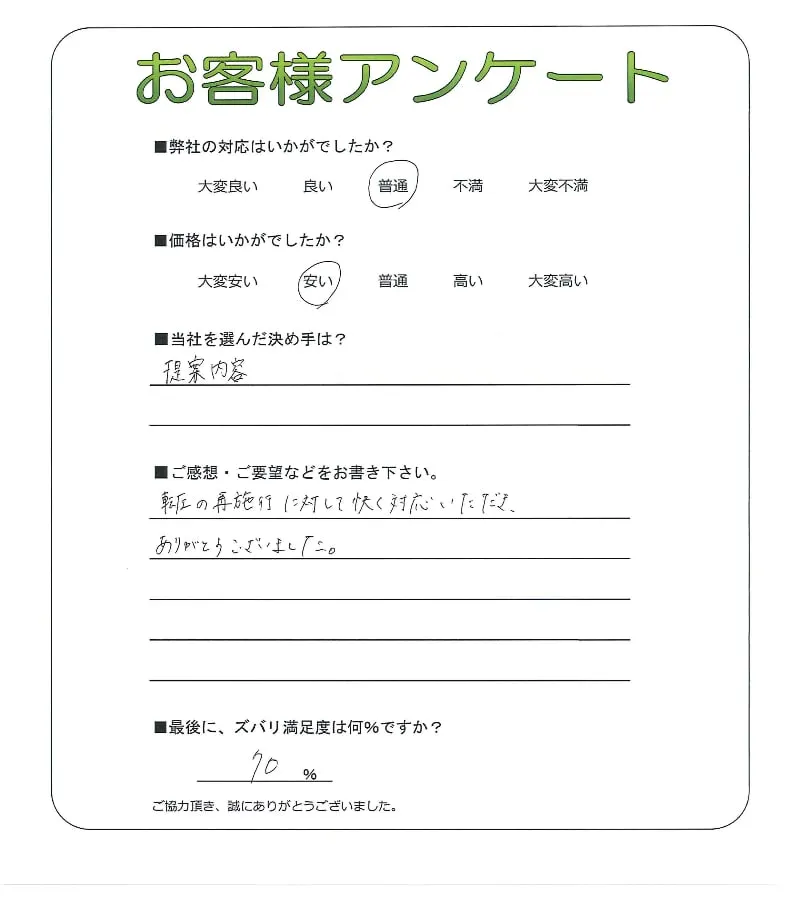 お客様アンケート
■弊社の対応はいかがでしたか？
大変良い 良い 普通 不満 大変不満
■価格はいかがでしたか？
大変安い 安い 普通 高い 大変高い
■当社を選んだ決め手は？
提案内容
■ご感想・ご要望などをお書き下さい。
転圧の再施行に対して快く対応いただき、
ありがとうございました。
■最後に、ズバリ満足度は何％ですか？
70 ％
ご協力頂き、誠にありがとうございました。